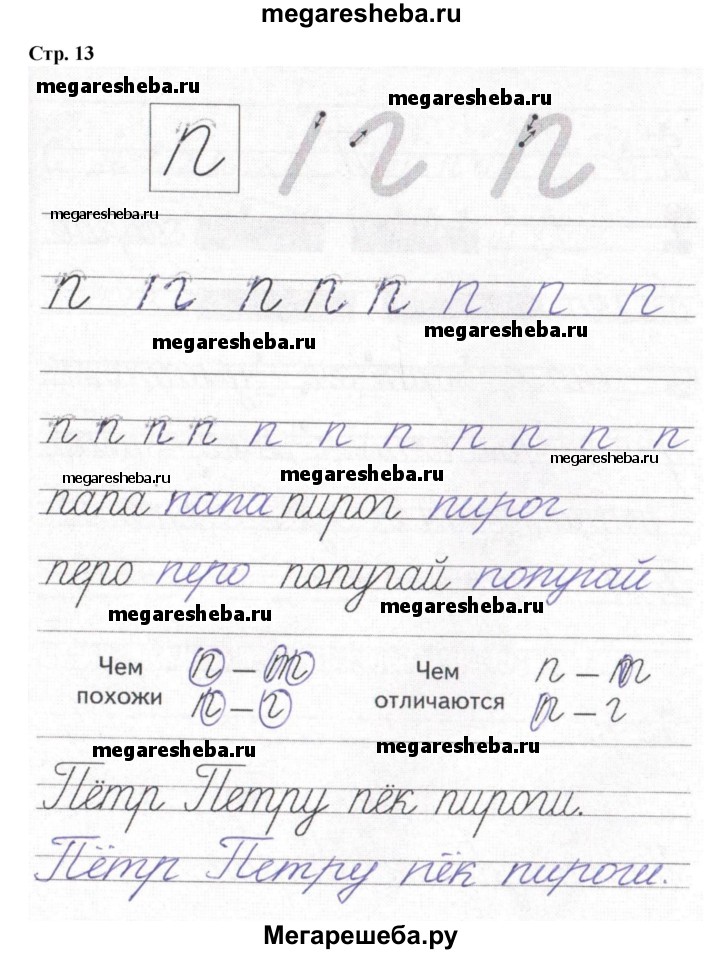 megaresheba.ru
Стр. 13
megaresheba.ru
megaresheba.ru
п г п
megaresheba.ru
п г п п п п п п
megaresheba.ru
megaresheba.ru
п п п п п п п п п п п
megaresheba.ru
megaresheba.ru
megaresheba.ru
папа папа пирог пирог
перо перо попугай попугай
megaresheba.ru
megaresheba.ru
Чем похожи п – т п – г
Чем отличаются п – т п – г
megaresheba.ru
megaresheba.ru
Пётр Петру пёк пироги.
Пётр Петру пёк пироги.
Мегарешеба.ру